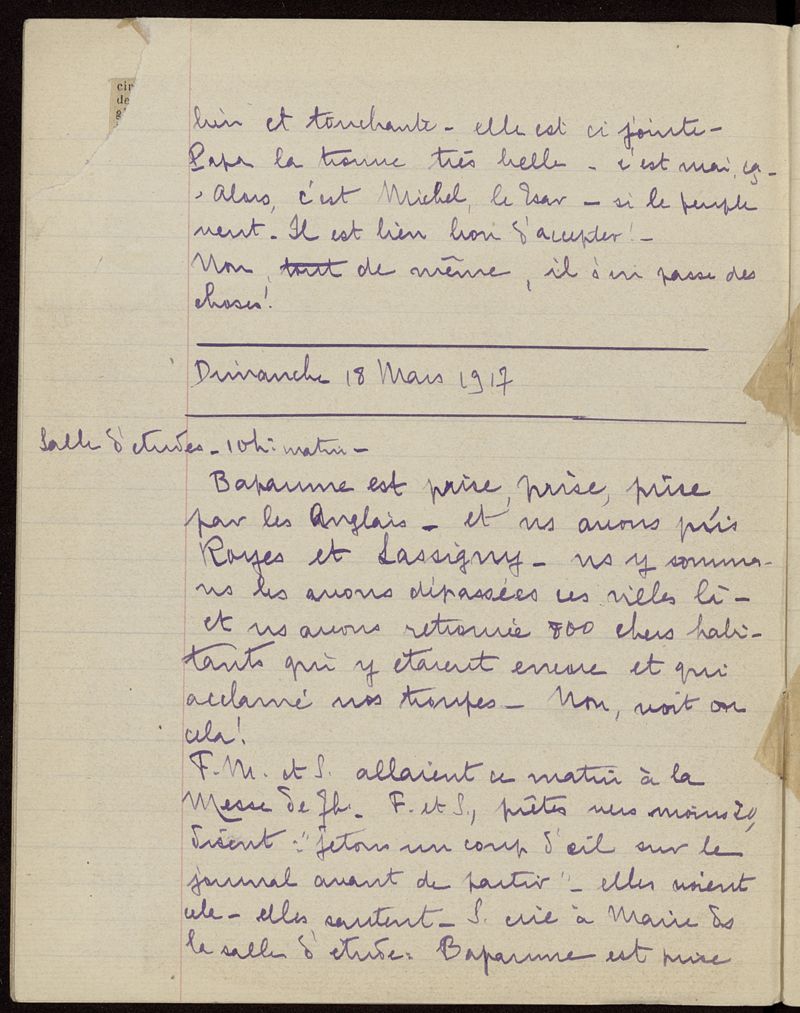 cir
de
bien et touchante - elle est ci jointe -
Papa la trouve très belle - c'est mai, eg -
Alors, c'est Michel, le Tsar - si le peuple
veut - Il est bien bon d'accepter! -
Non, tout de même, il s'en passe des
choses!
Dimanche 18 Mars 1917
Salle d'etudes - 10h: matin -
Bapaume est prise, prise, prise
par les Anglais - et ns avons pris
Royes et Lassigny - ns y sommes -
ns les avons dépassées ces villes là -
et ns avons retrouvé 800 chers habi-
tants qui y etaient encore et qui
acclamé nos troupes - Non, voit on
cela!
F. M. et S. allaient ce matin à la
Messe de 7h - F. et S., prêtes vers moins 20,
disent: "jetons un coup d'œil sur le
journal avant de partir" - elles voient
cela - elles sautent - S. crie à Marie ds
la salle d'etude: Bapaume est prise